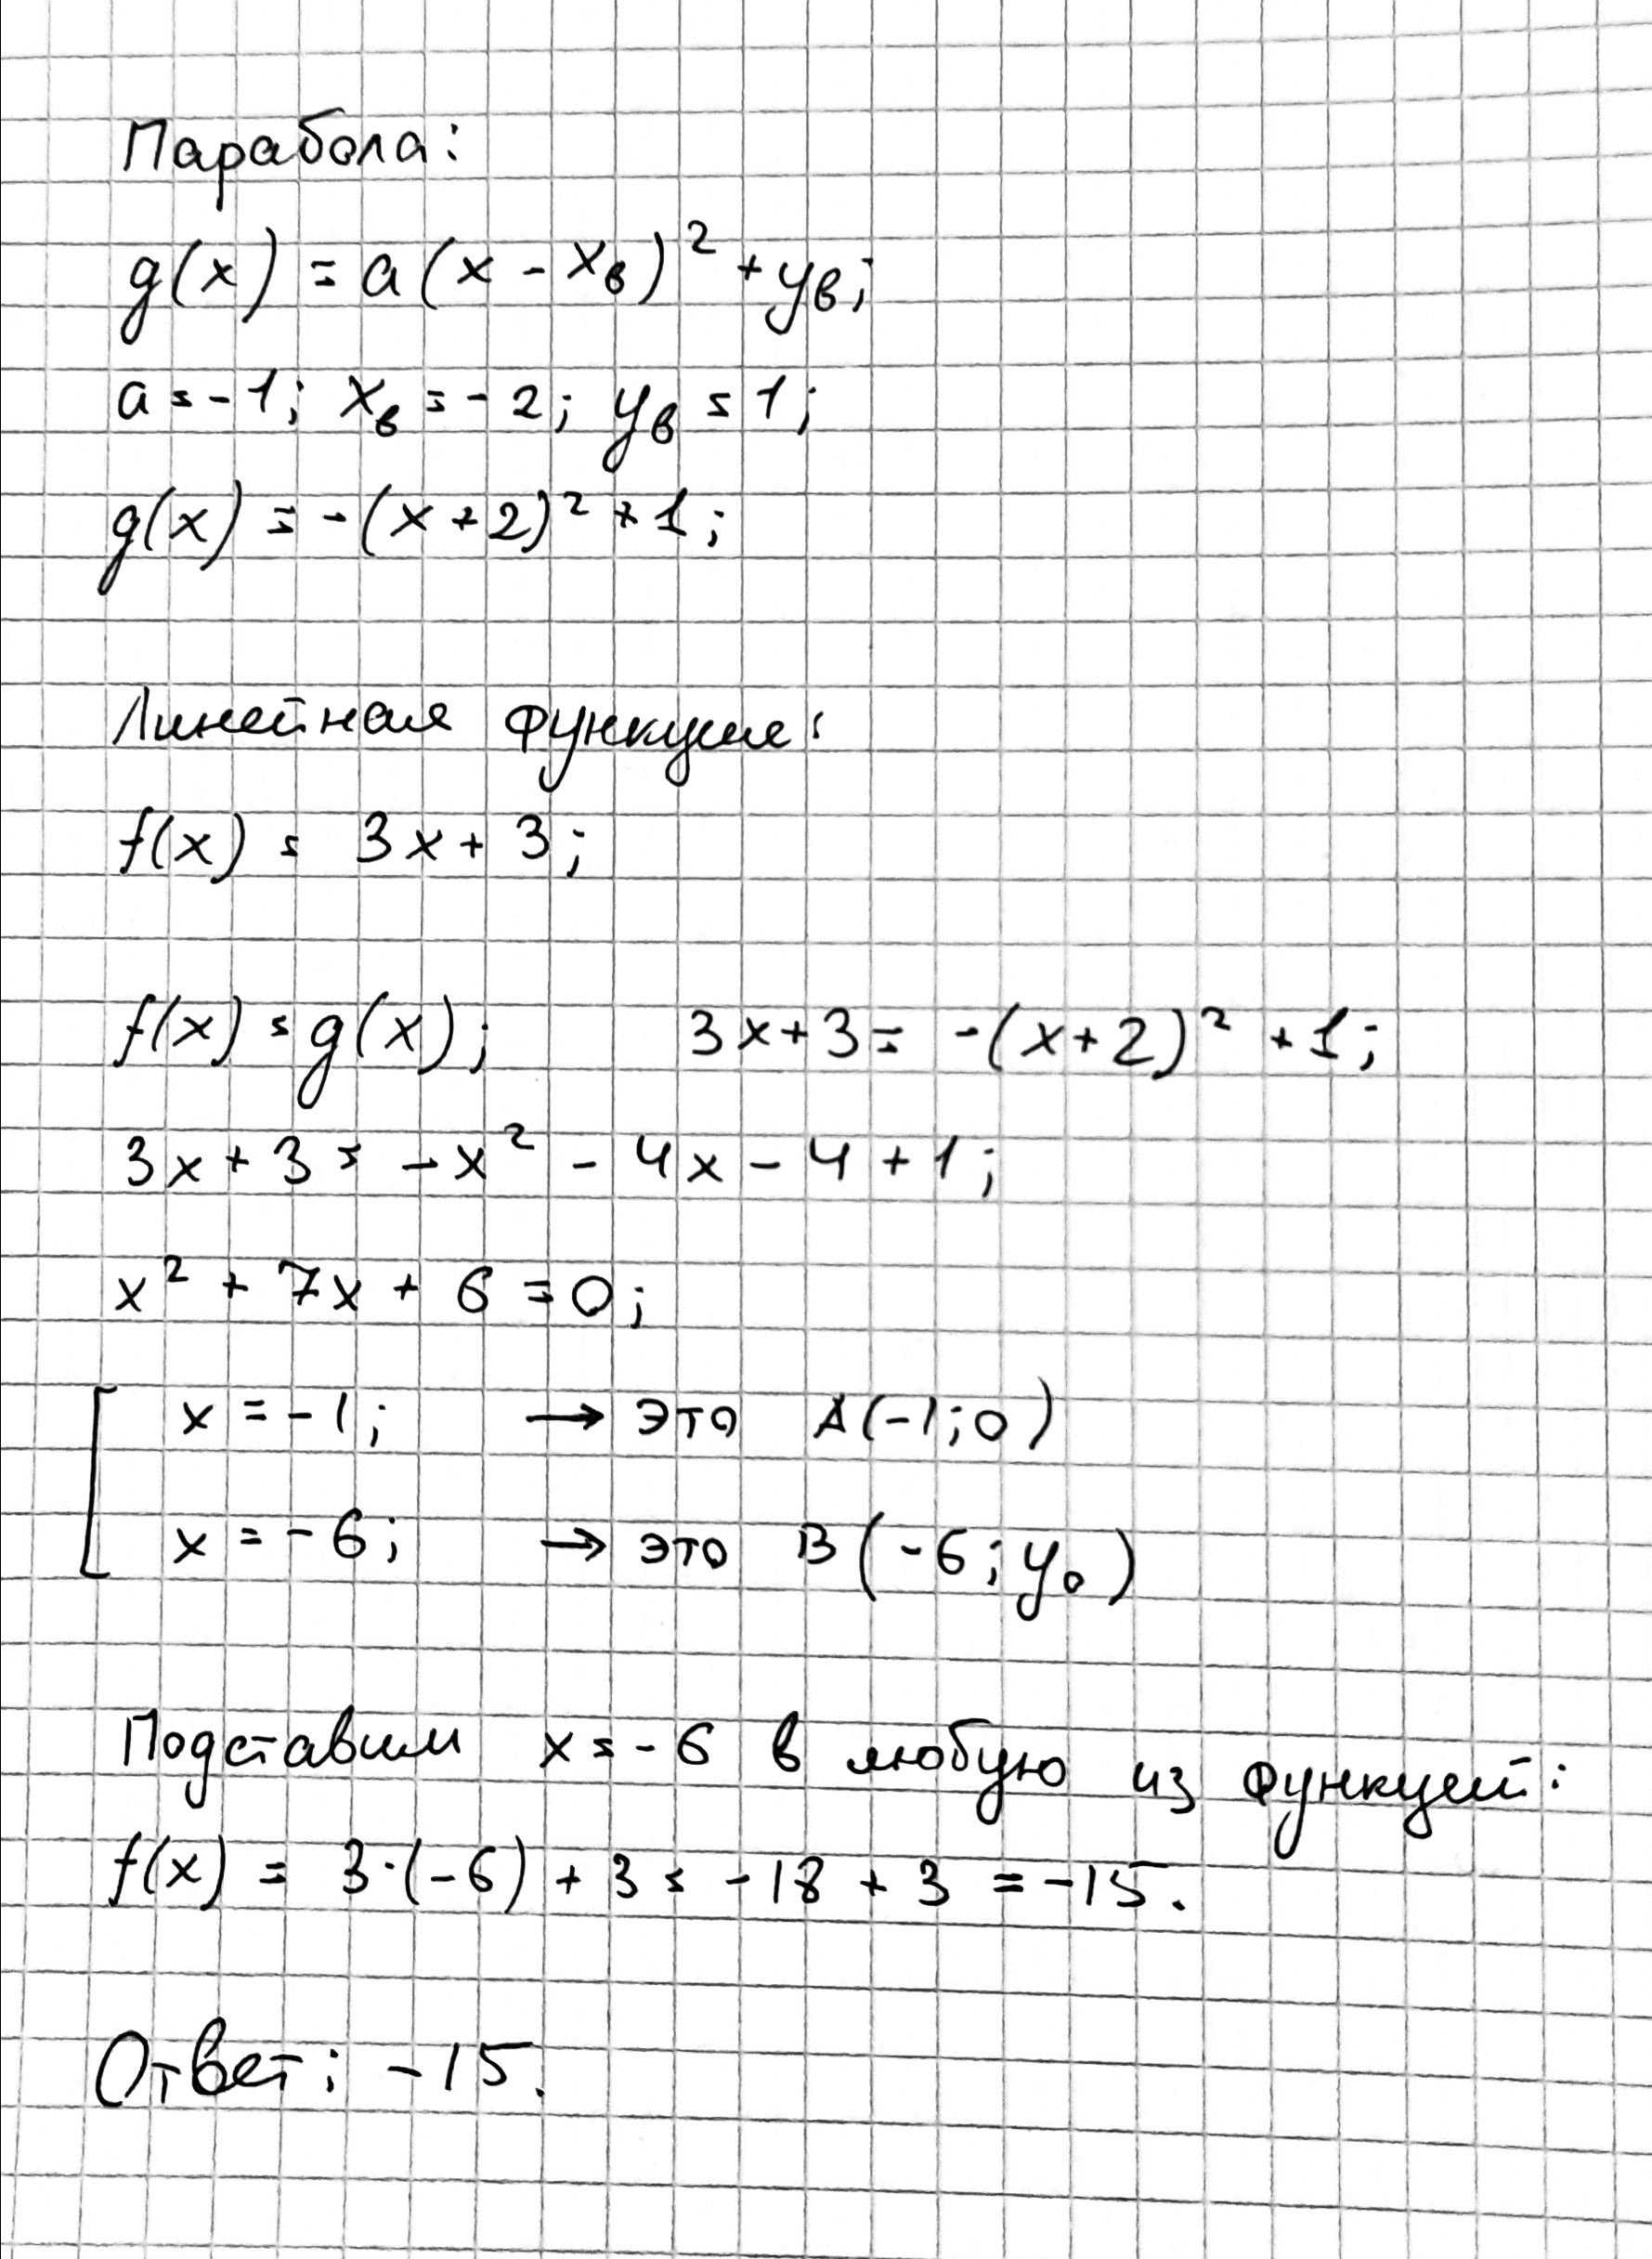 Парабола:
g(x) = a(x - xв)² + yв;
a = -1; xв = -2; yв = 1;
g(x) = -(x + 2)² + 1;
Линейная функция:
f(x) = 3x + 3;
f(x) = g(x); 3x + 3 = -(x + 2)² + 1;
3x + 3 = -x² - 4x - 4 + 1;
x² + 7x + 6 = 0;
[ x = -1; → это A(-1; 0)
x = -6; → это B(-6; y₀)
Подставим x = -6 в любую из функций:
f(x) = 3·(-6) + 3 = -18 + 3 = -15.
Ответ: -15.